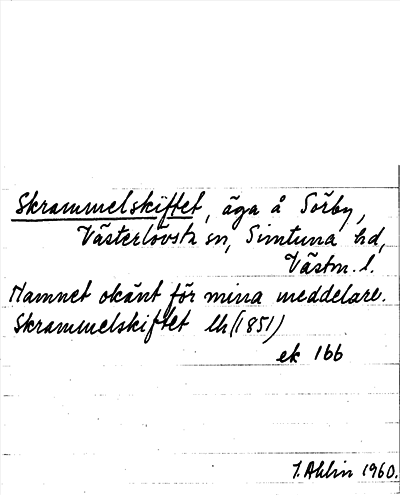 Skrammelskiftet, äga å Sörby,
Västerlövsta sn, Simtuna hd,
Västm. l.
Namnet okänt för mina meddelare.
Skrammelskiftet Lh (1851)
ek 166
J. Ahlin 1960.